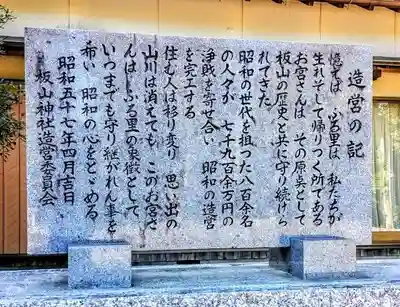 造営の記
憶えば ふる里は 私したちが
生れそして帰りつく所である
お宮さんは その原点として
板山の歴史と共に守り続けら
れてきた
昭和の世代を担った八百余名
の人々が 七千九百余万円の
浄財を寄せ合い 昭和の造営
を完工する
住む人は移り変り 思い出の
山川は消えても このお宮さ
んは ふる里の象徴として
いつまでも守り継がれん事を
希い 昭和の心をとゞめる
昭和五十七年四月吉日
板山神社造営委員会